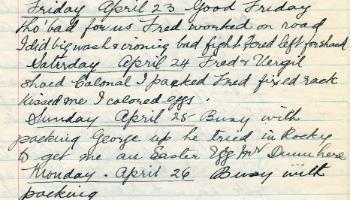 Friday April 23 Good Friday
tho' bad for us Fred worked on road
I did big wash & ironing bad fight Fred left for shack
Saturday April 24 Fred & Vergil
shoed Colonal I packed Fred fixed rack
kissed me I colored eggs.
Sunday April 25 Busy with
packing George up he tried in Rocky
to get me an Easter Egg Mr Dunn here
Monday. April 26 Busy with
packing